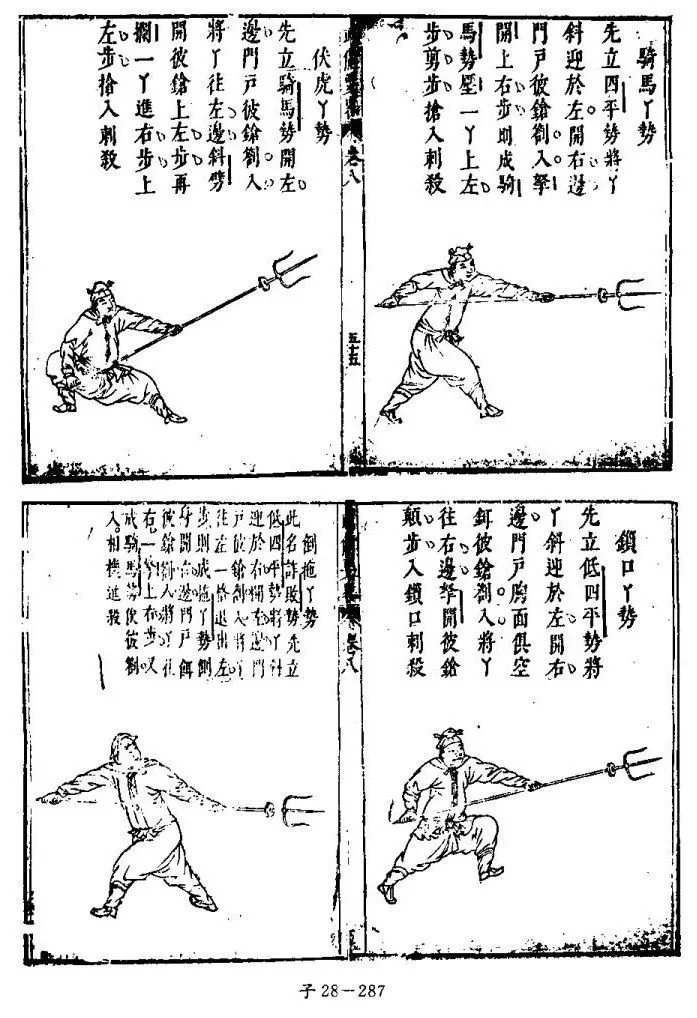 騎馬丫勢
先立四平勢將丫
斜迎於左開右邊
門戸彼鎗劄入拏
開上右步則成騎
馬勢壓一丫上左
步剪步搶入刺殺
卷八
五十五
伏虎丫勢
先立騎馬勢開左
邊門戸彼鎗劄入
將丫往左邊斜劈
開彼鎗上左步再
攔一丫進右步上
左步搶入刺殺
鎖口丫勢
先立低四平勢將
丫斜迎於左開右
邊門戸胸面俱空
餌彼鎗劄入將丫
往右邊拏開彼鎗
顛步入鎖口刺殺
卷八
倒拖丫勢
此名詐敗勢先立
低四平勢將丫斜
迎於右開左邊門
戸彼鎗劄入將丫
往左一格退出左
步則成拖丫勢側
身開右邊門戸餌
彼鎗劄入將丫往
右一拏上右步又
成騎馬勢伏彼劄
入相機進殺
子28－287